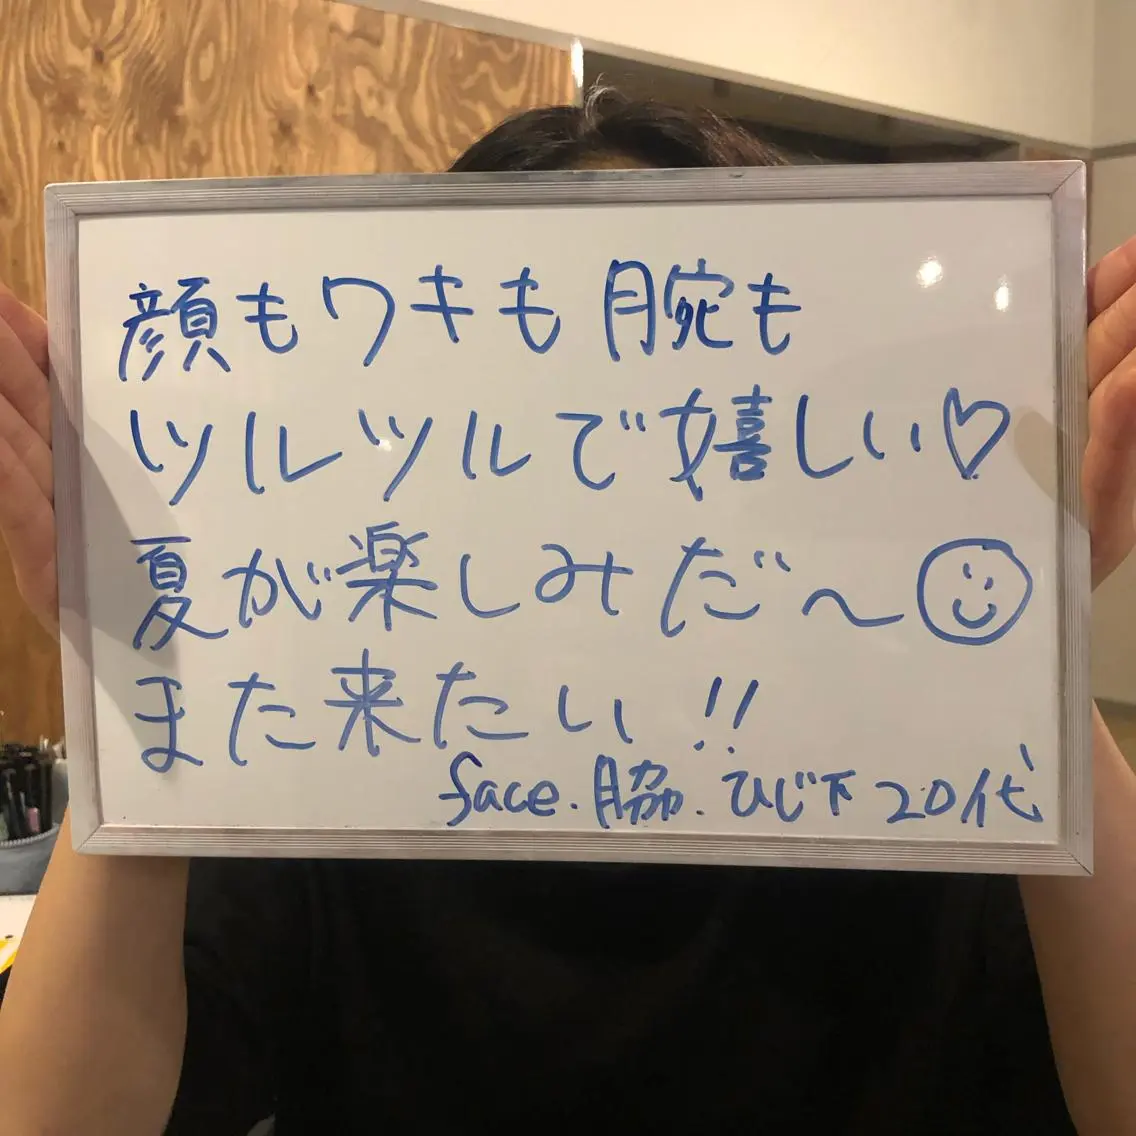 顔もワキも腕も
ツルツルで嬉しい♡
夏が楽しみだ〜☺
また来たい!!
face.脇.ひじ下 20代